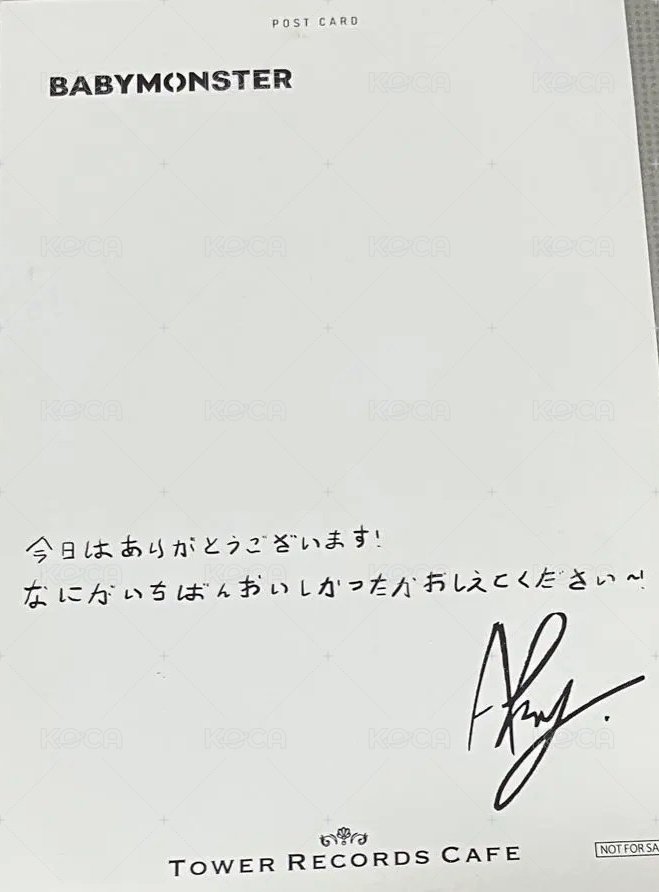 POST CARD
BABYMONSTER
今日はありがとうございます!
なにがいちばんおいしかったかおしえてください~!
TOWER RECORDS CAFE
NOT FOR SA
KOCA